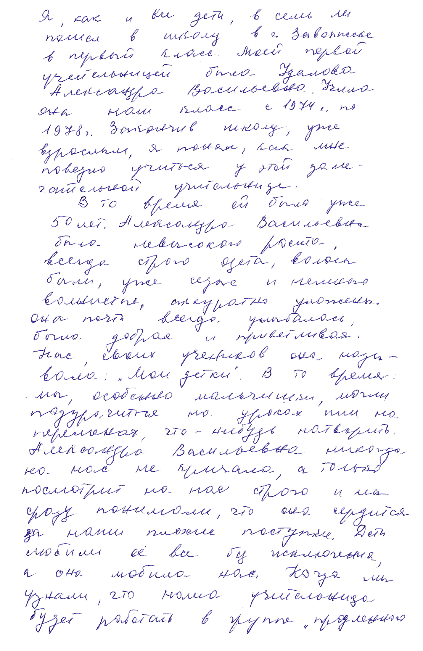 Я, как и вы дети, в семь лет
пошел в школу в г. Заволжске
в первый класс. Моей первой
учительницей была Удалова
Александра Васильевна. Учила
она наш класс с 1974г. по
1978г. Закончив школу, уже
взрослым, я понял, как мне
повезло учиться у этой заме-
чательной учительнице.
В то время ей было уже
50 лет. Александра Васильевна
была невысокого роста,
всегда строго одета, волосы
были, уже седые и немного
волнистые, аккуратно уложены.
она почти всегда улыбалась,
была добрая и приветливая.
Нас, своих учеников она назы-
вала: „Мои детки". В то время
мы, особенно мальчишки, могли
подурачиться на уроках или на
переменах, что-нибудь натворить.
Александра Васильевна никогда
на нас не кричала, а только
посмотрит на нас строго и мы
сразу понимали, что она сердится
за наши плохие поступки. Дети
любили её все без исключения,
а она любила нас. Когда мы
узнали, что наша учительница
будет работать в группе „продленного